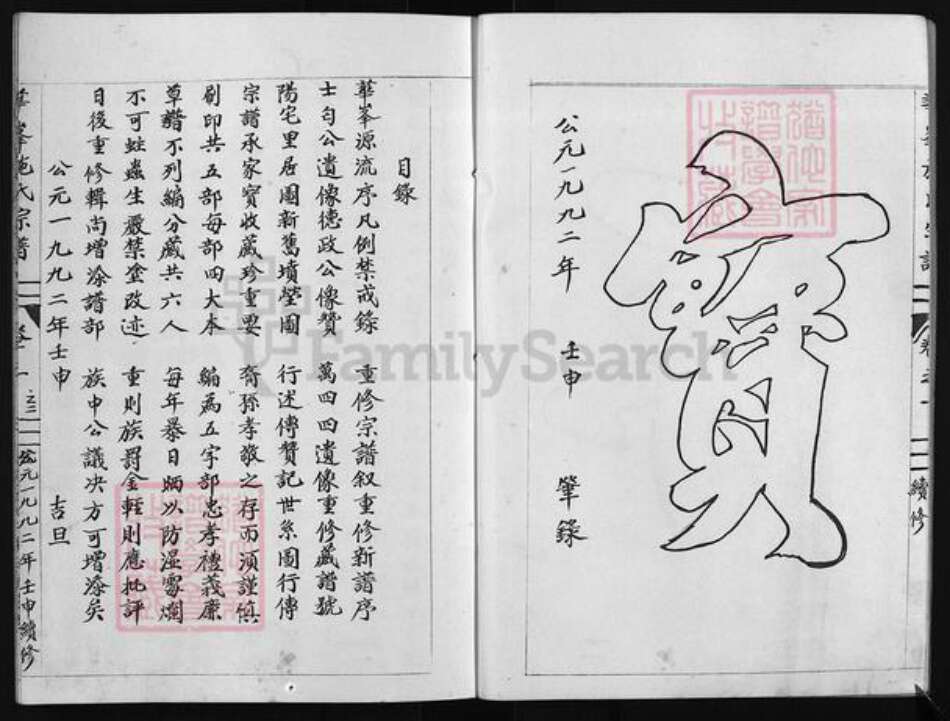 公元一九九二年 壬申 筆錄
寶
續修
目錄
華峯源流序凡例禁戒錄 重修宗譜叙重修新譜序
士匀公遺像德政公像贊 萬四四遺像重修藏譜號
陽宅里居圖新舊墳塋圖 行述傳贊記世系圖行傳
宗譜承家寶收藏珍重要 裔孫孝敬之存而須謹慎
刷印共五部每部四大本 編為五字部忠孝禮義廉
草譜不列編分藏共六人 每年暴日晒以防湿霉爛
不可蛀蟲生嚴禁塗改迹 重則族罰金輕則應批評
日後重修輯尚增添譜部 族中公議决方可增添矣
公元一九九二年壬申 吉旦
華峯施氏宗譜 卷之一 公元一九九二年壬申續修
FamilySearch